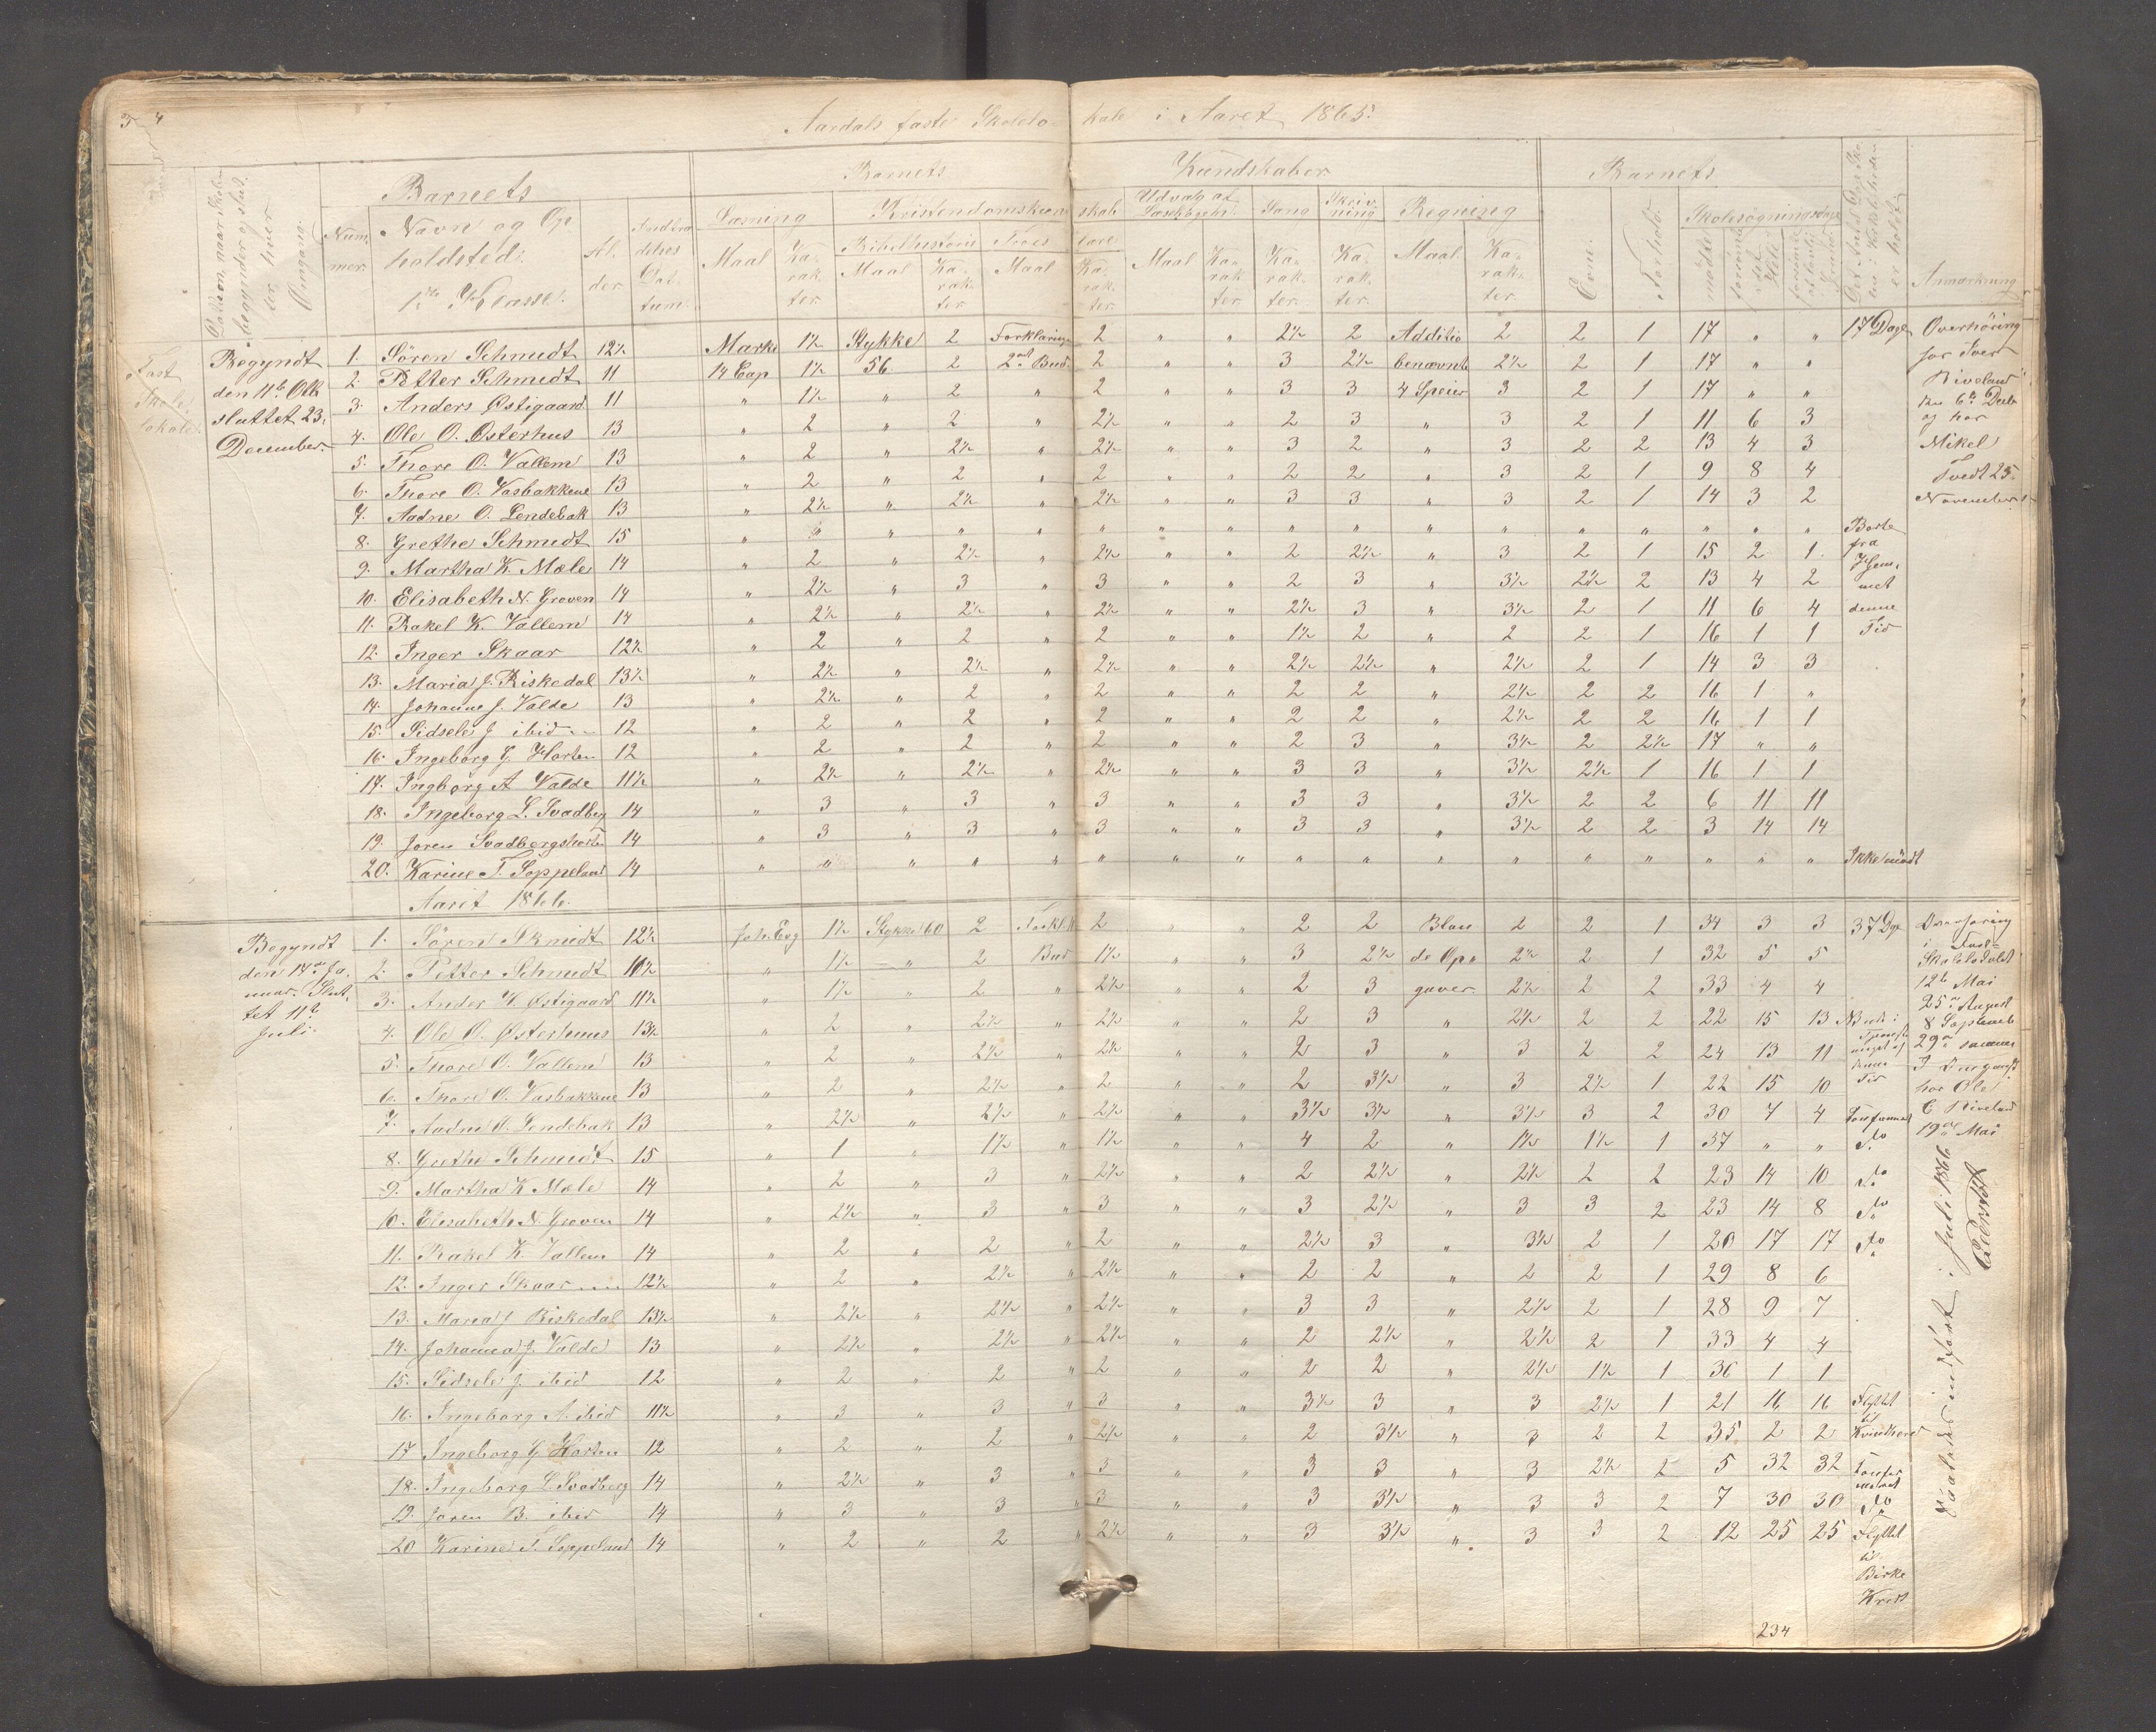 Aardals faste Skolelokale i Aaret 1865.
Barnets Barnets Kundskaber Barnets
Nummer. Navn og Opholdsted. 1ste Klasse. Alder Læsning Kristendomskundskab Udvalg af Læsebogen. Sang Skrivning Regning Evne. Forhold. Skolesøgningsdage Anmærkning
Bibelhistorie Troeslære
Maal Karakter Maal Karakter Maal Karakter Maal Karakter Karakter Karakter Maal Karakter
Fast Skolelokale
Begyndt den 11te Okt sluttet 23. December.
1. Sören Schmidt 12½ Marki 1½ Stykke 2 Forklaring 2 " " 2½ 2 Additio 2 2 1 17 " " 17 Dage
2. Petter Schmidt 11 14 Cap 1½ 56 2 2det Bud 2 " " 3 2½ benævnte 2½ 2 1 17 " "
3. Anders Østigaard 11 " 1½ " 2 " 2 " " 3 3 4 Speier 3 2 1 17 " "
4. Ole O. Østerhus 13 " 2 " 2 " 2½ " " 2 3 " 3 2 1 11 6 3
5. Thore O. Vallem 13 " 2 " 2½ " 2½ " " 3 2 " 3 2 2 13 4 3
6. Thore O. Vasbakkene 13 " 2 " 2 " 2 " " 2 2 " 3 2 1 9 8 4
7. Aadne O. Lendebak 13 " 2½ " 2½ " 2½ " " 3 3 " 3 2 1 14 3 2
8. Grethe Schmidt 15 " " " " " " " " " " " " " " " " " Borte fra Hjemmet denne Tid
9. Martha K. Mæle 14 " 2 " 2½ " 2½ " " 2 2½ " 3 2 1 15 2 1
10. Elisabeth N. Groven 14 " 2½ " 3 " 3 " " 2 3 " 3½ 2½ 2 13 4 2
11. Rakel K. Vallem 14 " 2½ " 2½ " 2½ " " 2½ 3 " 3½ 2 1 11 6 4
12. Inger Skaar 12½ " 2 " 2 " 2 " " 1½ 2 " 2 2 1 16 1 1
13. Maria J. Riskedal 13½ " 2½ " 2½ " 2½ " " 2½ 2½ " 2½ 2 1 14 3 3
14. Johanne J. Valde 13 " 2½ " 2 " 2 " " 2 2 " 2½ 2 2 16 1 "
15. Sidsele J ibid 12 " 2 " 2 " 2 " " 2 2 " 2½ 2 2 16 1 1
16. Ingeborg G Horten 12 " 2 " 2 " 2 " " 2 3 " 3½ 2 2½ 17 " "
17. Ingborg A Valde 11½ " 2½ " 2½ " 2½ " " 3 3 " 3½ 2½ 1 16 1 1
18. Ingeborg L. Svadberg 14 " 3 " 3 " 3 " " 3 3 " 3½ 2 2 6 11 11
19. Joren Svadbergshorten 14 " 3 " 3 " 3 " " 3 3 " 3½ 2 2 3 14 14
20. Karine T. Soppeland 14 " " " " " " " " " " " " " " " " " Ikke mödt
Overhöring
hos Iver
Riveland
den 6te Decb
og hos
Mikel
Tvedt 25.
November
Aaret 1866.
Begyndt den 14de Januar. Sluttet 11te Juli.
1. Sören Skmidt 12½ Joh. Evg 1½ Stykke 60 2 2 " " 2 2 Blan 2 2 1 34 3 3 37 Dge
2. Petter Schmidt 10½ " 1½ " 2 Bud 1½ " " 3 2½ de Op 2½ 2 1 32 5 5
3. Ander K. Østigaard 11½ " 1½ " 2 " 2½ " " 2 3 gaver. 2½ 2 2 33 4 4
4. Ole O. Østerhuus 13½ " 2 " 2½ " 2½ " " 2 3 " 2½ 2 2 22 15 13
5. Thore O. Vallem 13 " 2 " 2½ " 2½ " " 2 3 " 3 2 2 24 13 11
6. Thore O. Vasbakkene 13 " 2 " 2½ " 2 " " 2 3½ " 3 2½ 1 22 15 10
7. Aadne O. Lendebak 13 " 2½ " 2½ " 2½ " " 3½ 3½ " 3½ 3 2 30 7 4
8. Grethe Schmidt 15 " 1 " 1½ " 1½ " " 4 2 " 1½ 1½ 1 37 " " Do
9. Martha K Mæle 14 " 2 " 3 " 2½ " " 2 2½ " 2½ 2 2 23 14 10 Do
10. Elisabeth N Groven 14 " 2½ " 3 " 3 " " 3 2½ " 3 3 2 23 14 8 Do
11. Rakel K. Vallem 14 " 2 " 2 " 2 " " 2½ 3 " 3½ 2 1 20 17 17 Do
12. Inger Skaar 12½ " 2 " 2½ " 2½ " " 2 2 " 2 2 1 29 8 6
13. Maria J Riskedal 13½ " 2½ " 2½ " 2½ " " 3 3 " 2½ 2 1 28 9 7
14. Johanna J. Valde 13 " 2½ " 2½ " 2½ " " 2 2½ " 2½ 2 1 33 4 4
15. Sidsele J. ibid 12 " 2 " 2 " 2 " " 2 2 " 2½ 1½ 1 36 1 1
16. Ingeborg A. ibid 11½ " 3 " 3 " 3 " " 3½ 3 " 3 2½ 1 21 16 16 Flyttet til
17 Ingeborg G Horten 12 " 2 " 2 " 2½ " " 2 3½ " 3 2 2 35 2 2
18. Ingeborg L Svadberg 14 " 2½ " 3 " 3 " " 3 3 " 3 2½ 2 5 32 32
19. Joren B. ibid 14 " 3 " 3 " 3 " " 3 3½ " 3 3 2 7 30 30 Do
20 Karine T. Soppeland 14 " 2 " 2 " 2½ " " 3 3½ " 3 3 2 12 25 25 Flyttet til Birke
12te Mai
25de August
8 Septemb
hos Ole
19de Mai
234